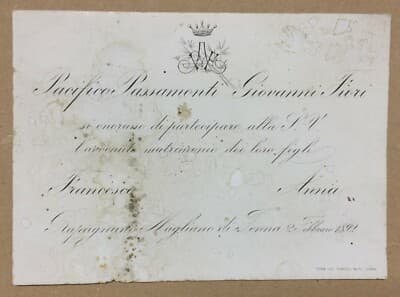 Pacifico Passamonti Giovanni Fiori
si onorano di partecipare alla S. V.
l'avvenuto matrimonio dei loro figli
Francesco Annia
Grapagnano Magliano di Tenna 2 Febbraio 1892